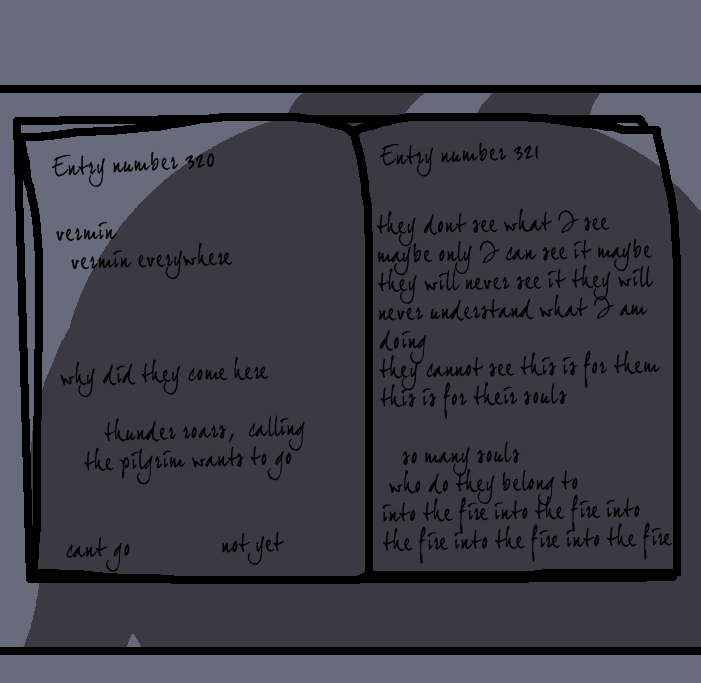 Entry number 320
vermin
vermin everywhere
why did they come here
thunder roars, calling
the pilgrim wants to go
cant go not yet
Entry number 321
they dont see what I see
maybe only I can see it maybe
they will never see it they will
never understand what I am
doing
they cannot see this is for them
this is for their souls
so many souls
who do they belong to
into the fire into the fire into
the fire into the fire into the fire